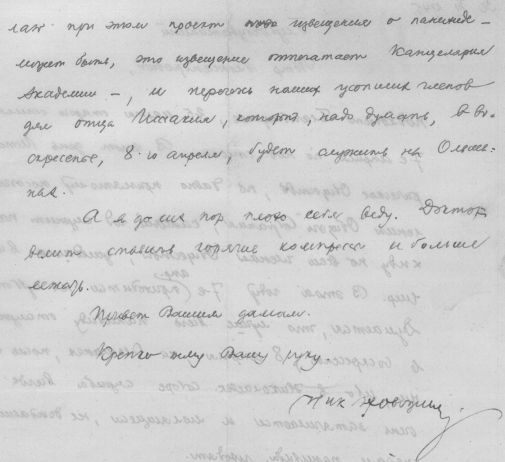 лаю при этом проект извещения о панихиде –
может быть, это извещение отпечатает Канцелярия
Академии –, и перечень наших усопших членов
для отца Исакия, который, надо думать, в во-
скресенье, 8-го апреля, будет служить на Ольша-
нах.
А я до сих пор плохо себя веду. Доктор
велит ставить горячие компрессы и больше
лежать.
Привет Вашим дамам.
Крепко жму Вашу руку.
Ник